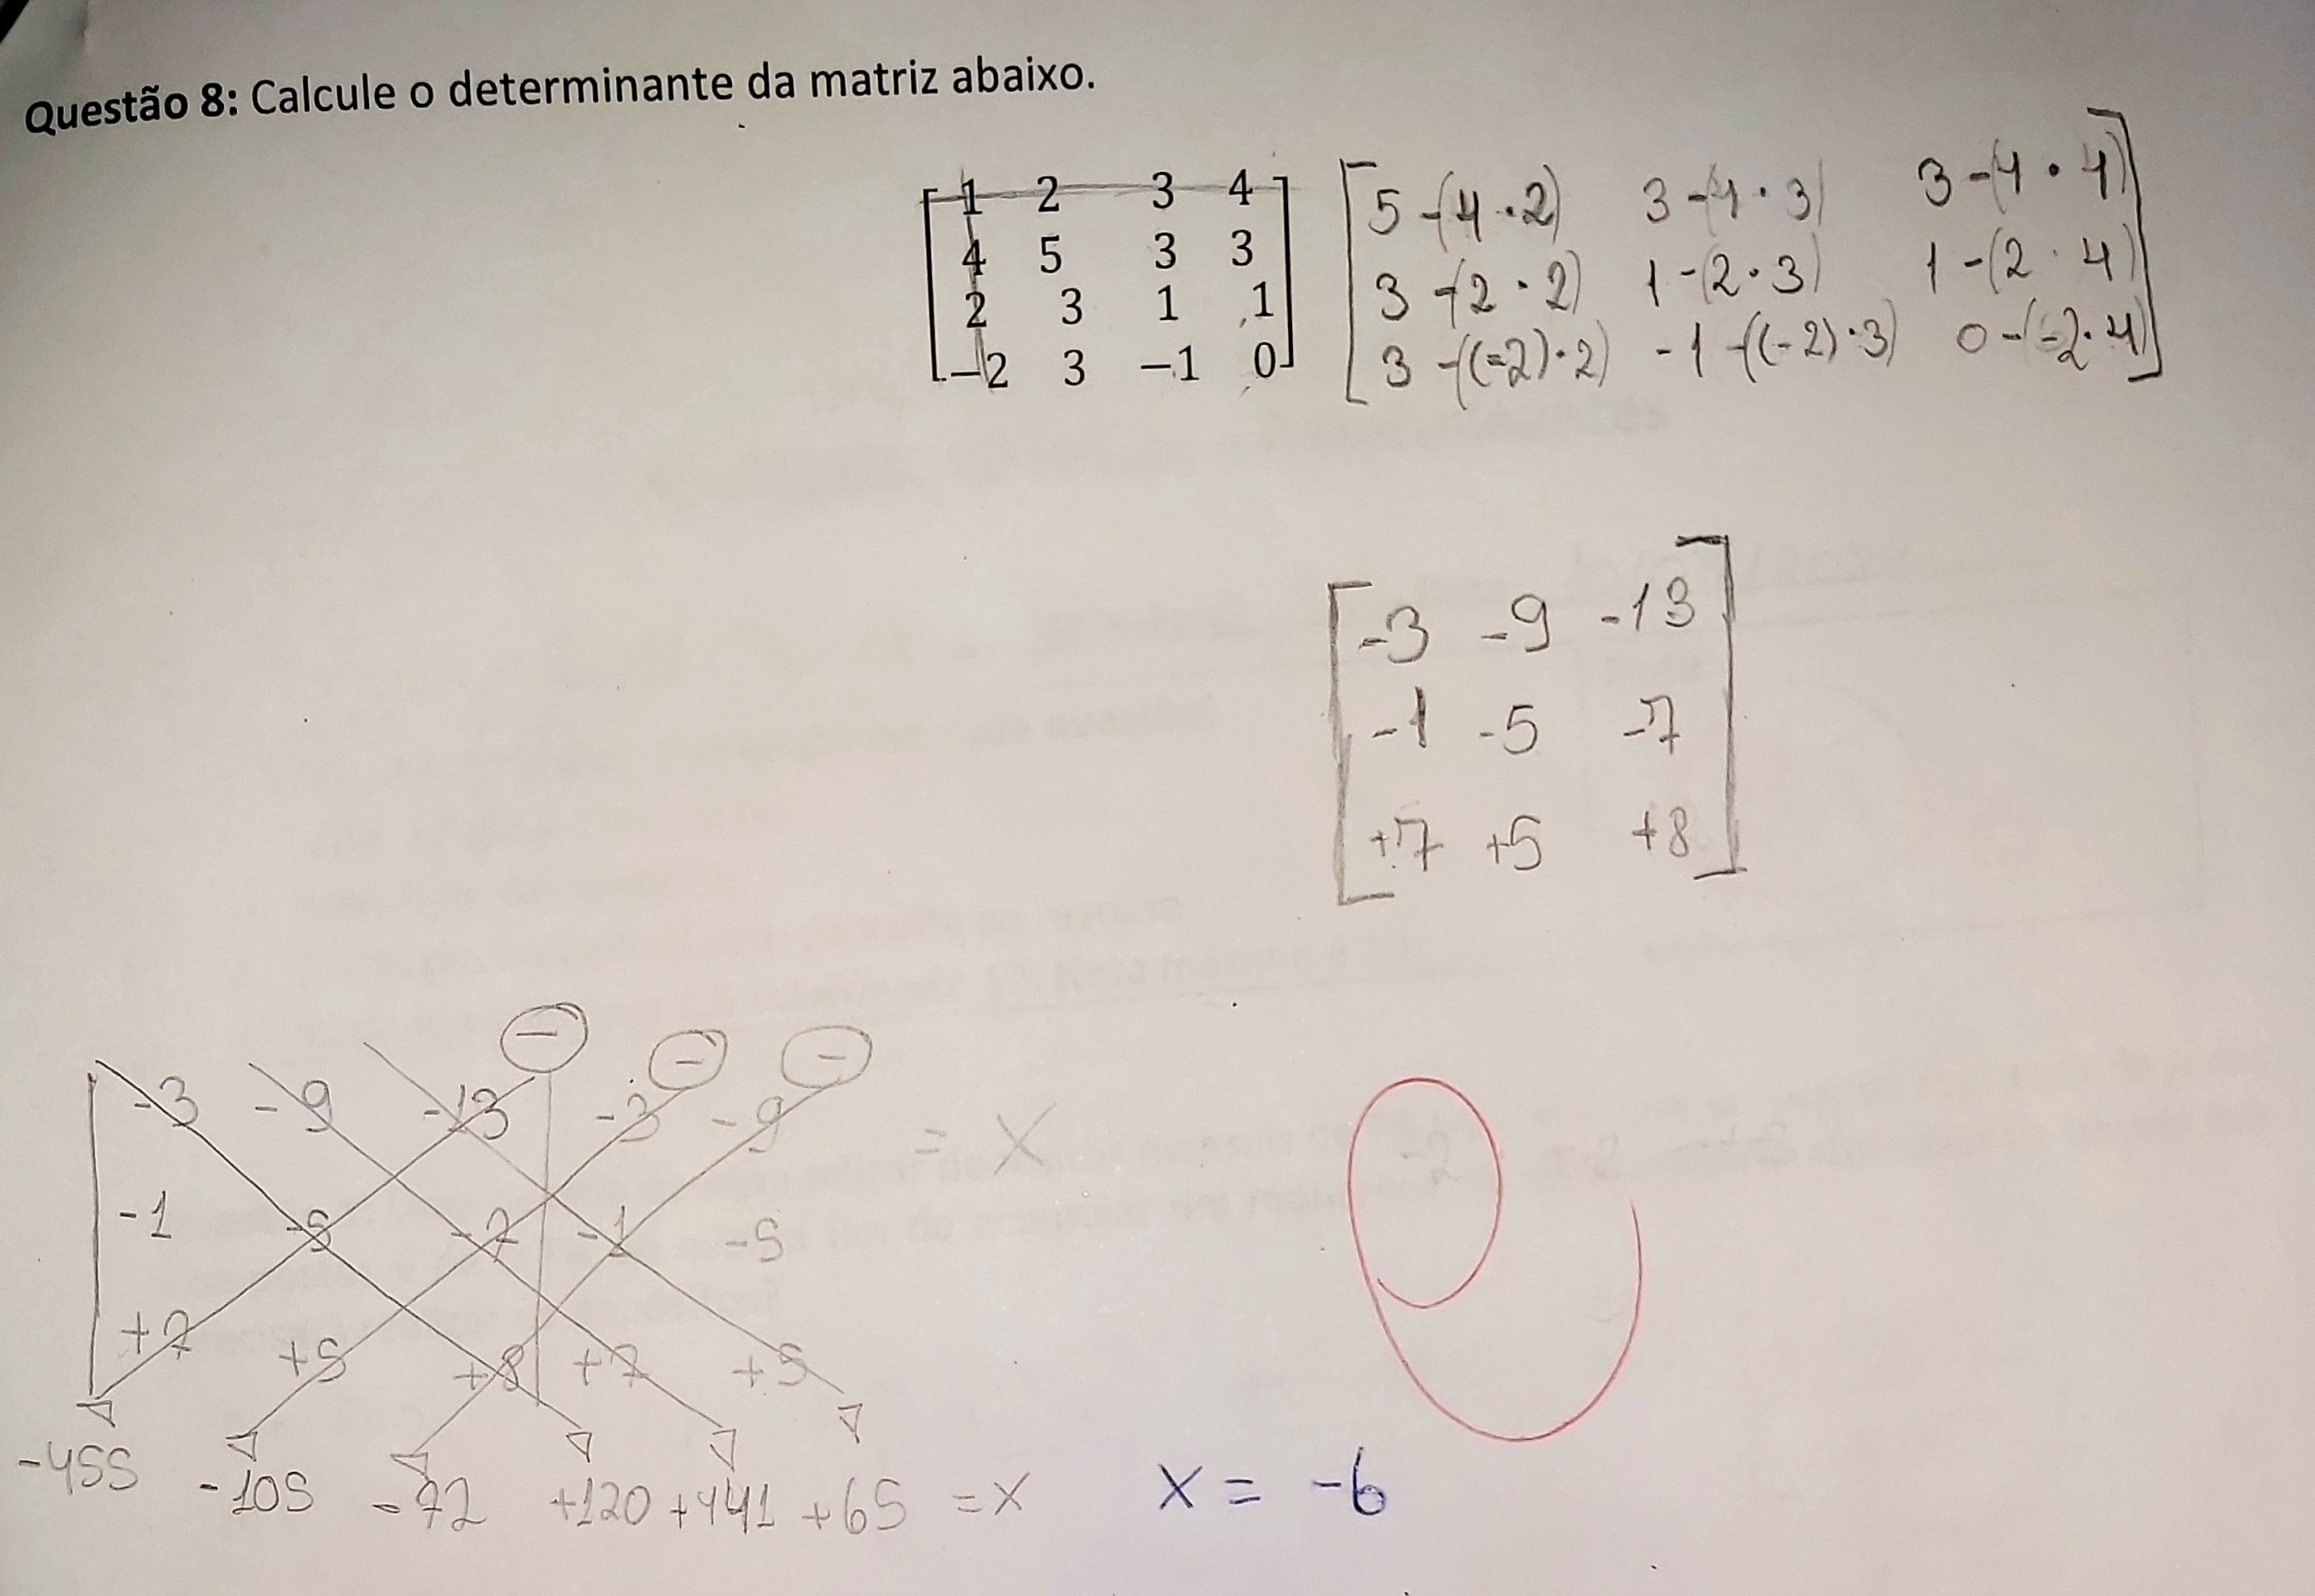 Questão 8: Calcule o determinante da matriz abaixo.
1 2 3 4
4 5 3 3
2 3 1 1
-2 3 -1 0
5-(4·2) 3-(4·3) 3-(4·4)
3-(2·2) 1-(2·3) 1-(2·4)
3-((-2)·2) -1-((-2)·3) 0-(-2·4)
-3 -9 -13
-1 -5 -7
+7 +5 +8
- - -
-3 -9 -13 -3 -9 = X
-1 -5 -7 -1 -5
+7 +5 +8 +7 +5
-455 -105 -72 +120 +441 +65 = X
X = -6